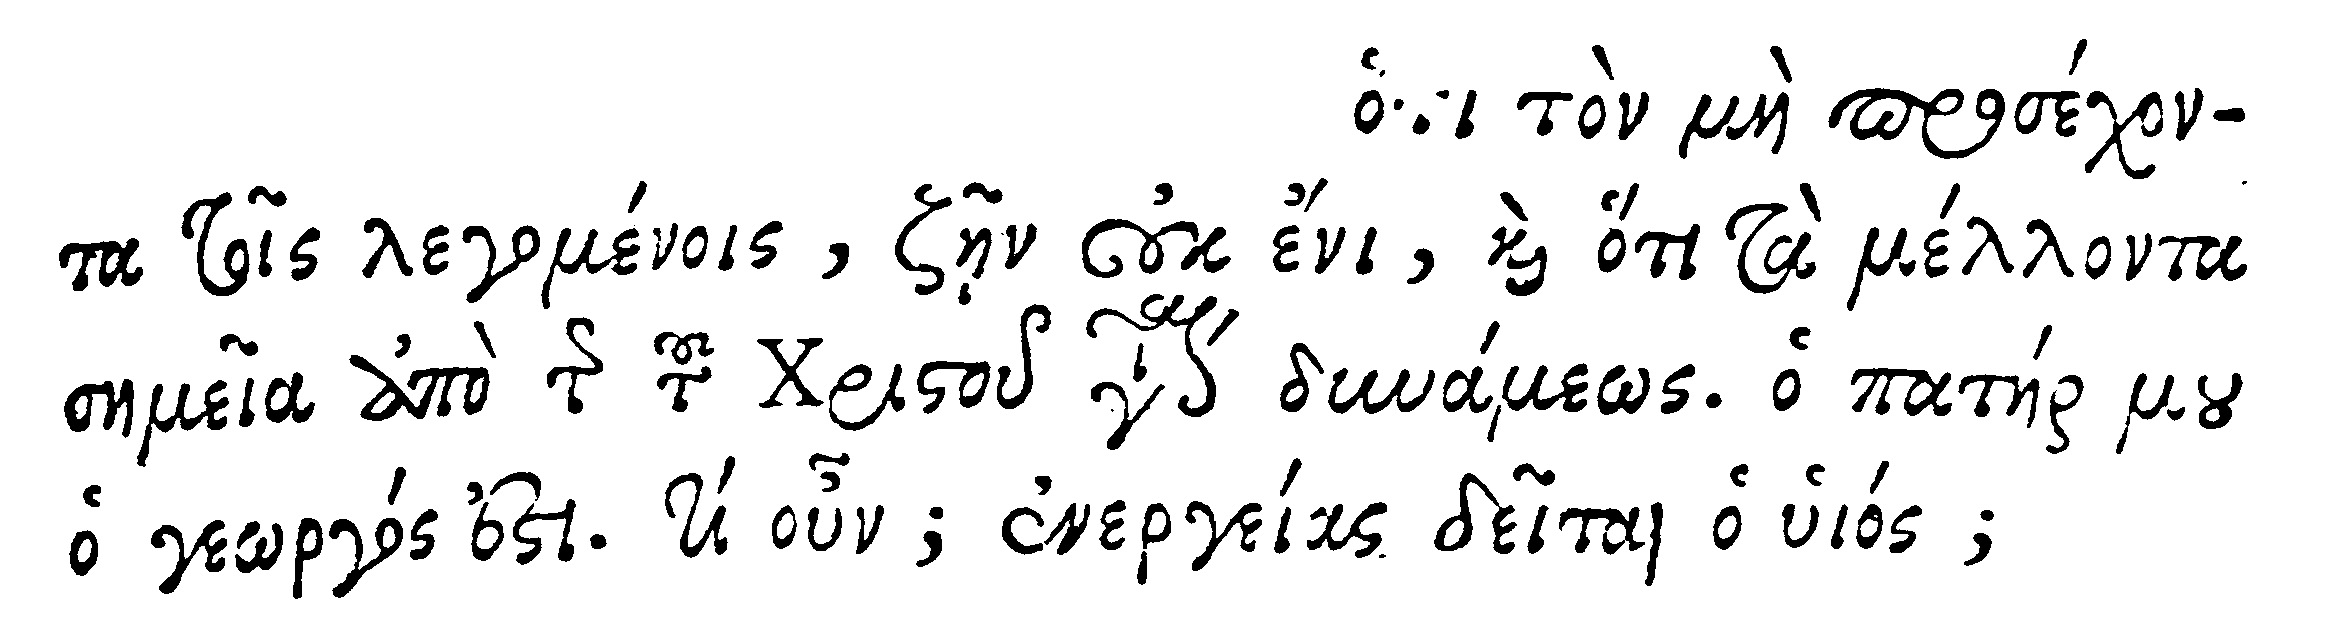 ὅτι τὸν μὴ προσέχον-
τα τοῖς λεγομένοις, ζῇν οὐκ ἔνι, καὶ ὅτι τὰ μέλλοντα
σημεῖα ἀπὸ τῆς τοῦ Χριστοῦ δυνάμεως. ὁ πατήρ μου
ὁ γεωργός ἐστι. τί οὖν; ἐνεργείας δεῖται ὁ ὑιός;